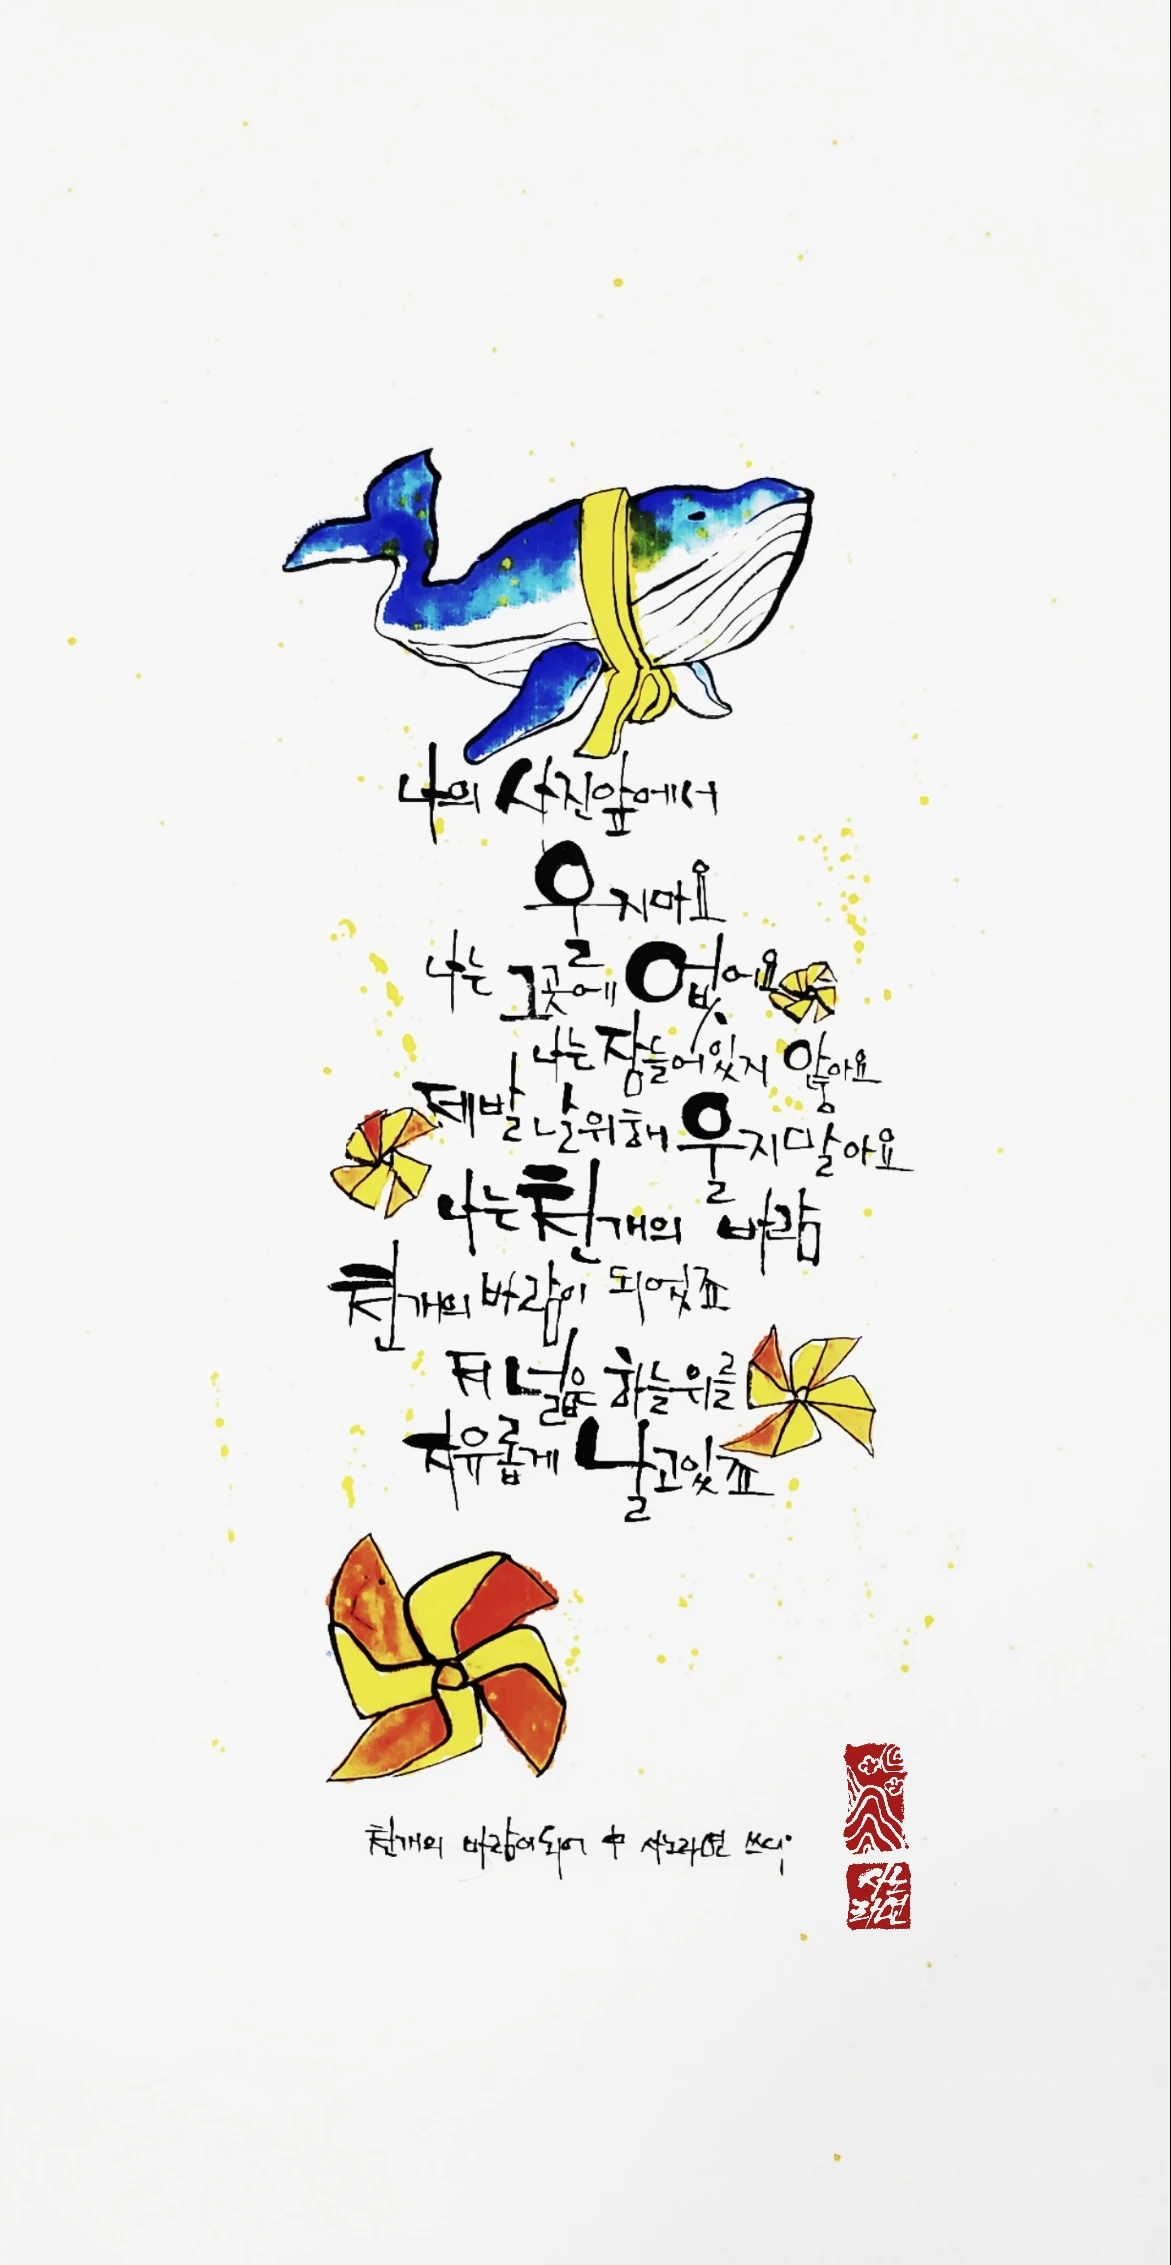 나의 사진앞에서
울지마요
나는 그곳에 없어요
나는 잠들어있지 않아요
제발 날위해 울지말아요
나는 천개의 바람
천개의 바람이 되었죠
저 넓은 하늘위를
자유롭게 날고있죠
천개의 바람이되어 中 사노라면 쓰다